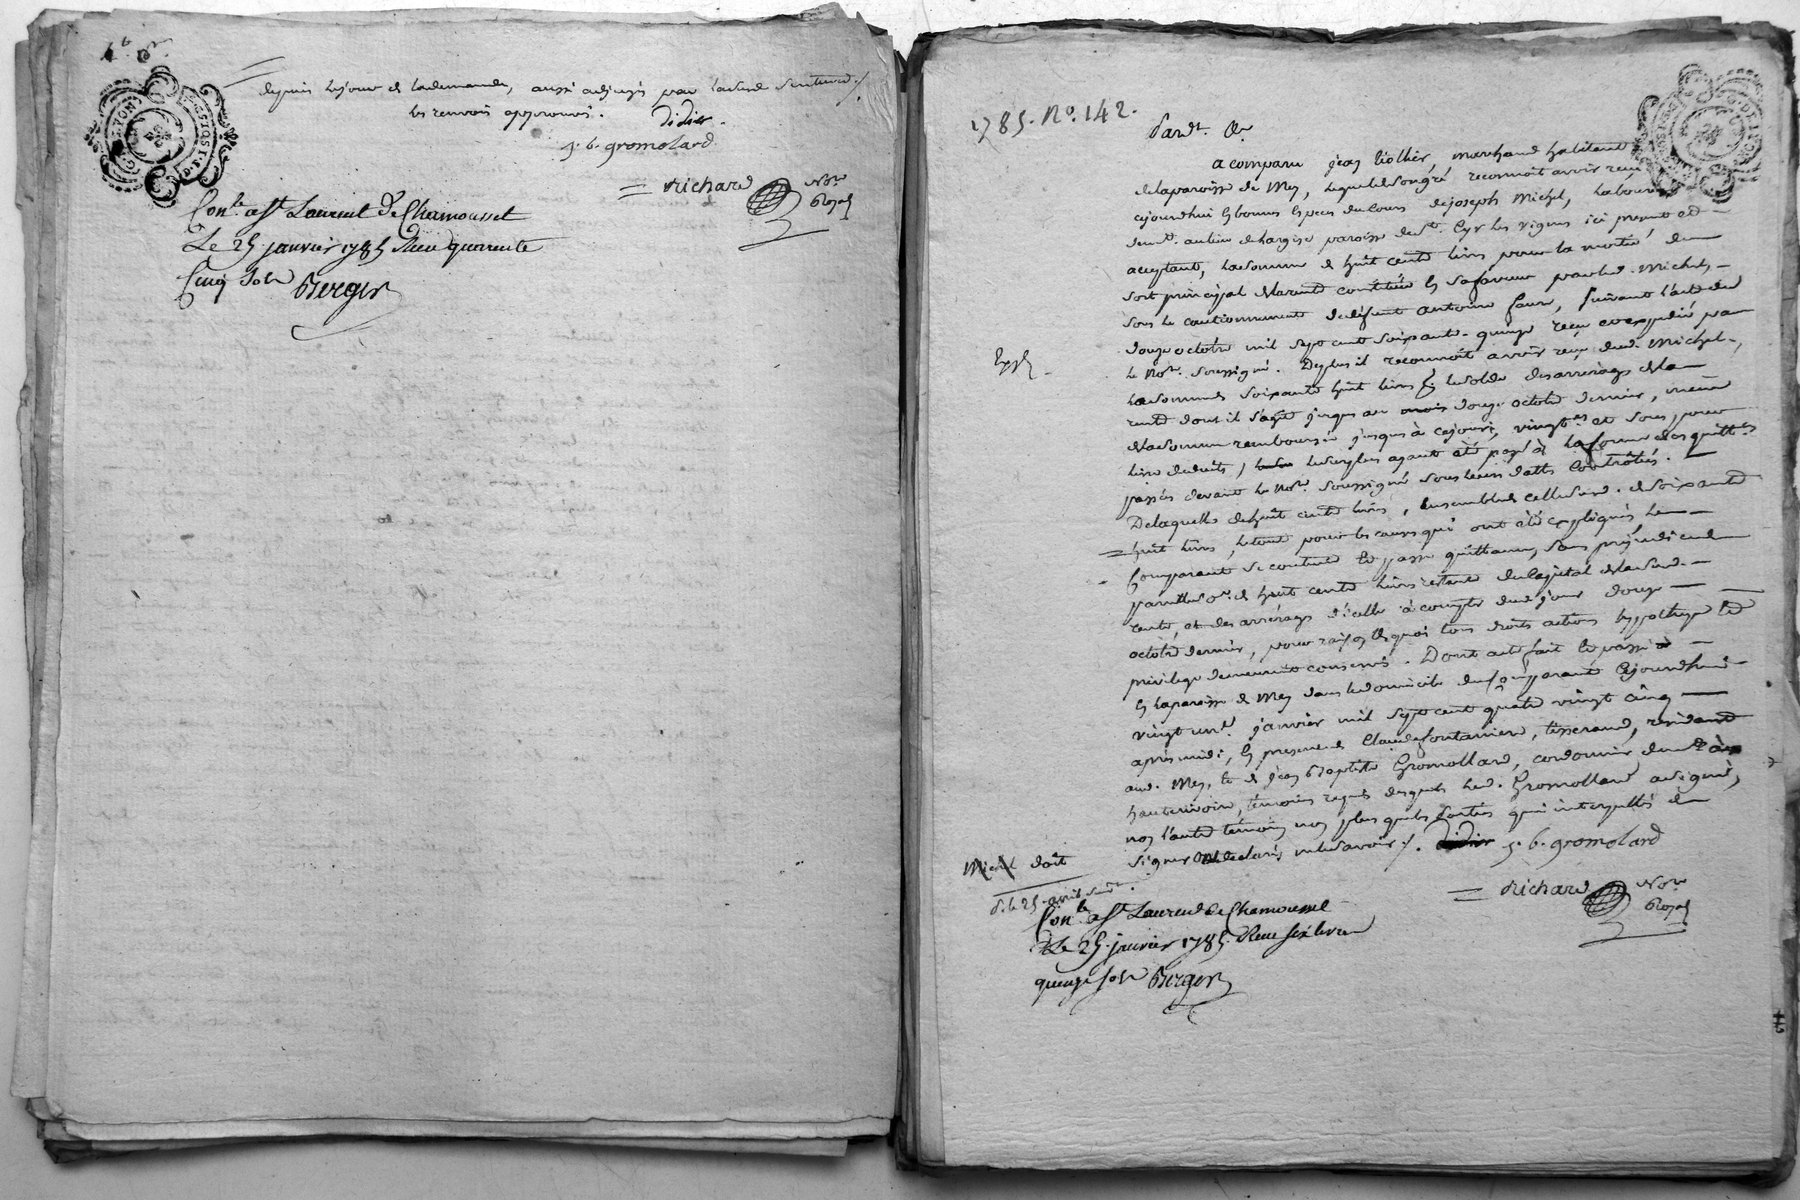 depuis le jour de la demande, aussi adjugés par lad. Sentence ./.
les renvois approuvés. Didier.
j. b. gromolard
Richard Nore Royal
Conle a St Laurent de Chamousset
Le 25 janvier 1785 Reçu quarente
Cinq Sols Berger
1785. No. 142.
Pardt.
a comparu jean tiollier, marchand habitant
de la paroisse de Mey, lequel de son gré reconnoit avoir reçu
cejourdhui en bonnes espèces du cours de joseph Michel, laboureur
demt. au lieu de paroisse de St. Cyr les vignes ici present et
acceptant, la somme de huit cents livres pour la moitié du
sort principal de la rente constituée en sa faveur par led. Michel
sous le cautionnement de défunt antoine faure, suivant l'acte du
douze octobre mil sept cent soixante-quinze reçu et expédié par
le Nore. soussigné. De plus il reconnoit avoir reçu dud. Michel,
la somme de soixante huit livres pr. le solde des arrerages de la
rente dont il s'agit jusques au mois douze octobre dernier, même
de la somme remboursée jusques à cejour,
livre déduits, le surplus ayant été payé à la forme des quittces
passés devant le Nore. soussigné sous leurs dattes Contrôlés.
De laquelle de huit cents livres, ensemble de celle de soixante
huit livres, le tout pour les causes qui ont été expliqués le
Comparant se contente et passe quittance, sans préjudice de
pareille somme de huit cents livres restante du Capital de lad.
rente, et des arrérages d'icelle à compter dud. jour douze
octobre dernier, pour raison de quoi tous droits actions hypotheque et
privilege demeurent conservés. Dont acte fait et passé à
en la paroisse de Mey dans le domicile du Comparant Cejourdhui
vingt un janvier mil sept cent quatre vingt cinq
après midi, en presence de Claude fontanière, tisserand, résidant
aud. Mey, et de jean Baptiste Gromollard, cordonnier demt. à
hauterivoire, témoins requis desquels led. Gromollard a signé,
non l'autre témoin non plus que les parties qui interpellés de
signer ont déclaré ne le savoir ./. j. b. gromolard
Expé
Michel doit
Richard Nore Royal
Conle a St Laurent de Chamousset
Le 25 janvier 1785. Reçu six livres
quinze sols Berger